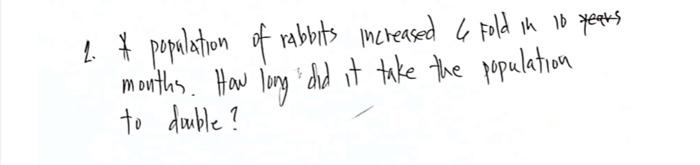 2. A population of rabbits increased 6 fold in 10 years
months. How long did it take the population
to double?